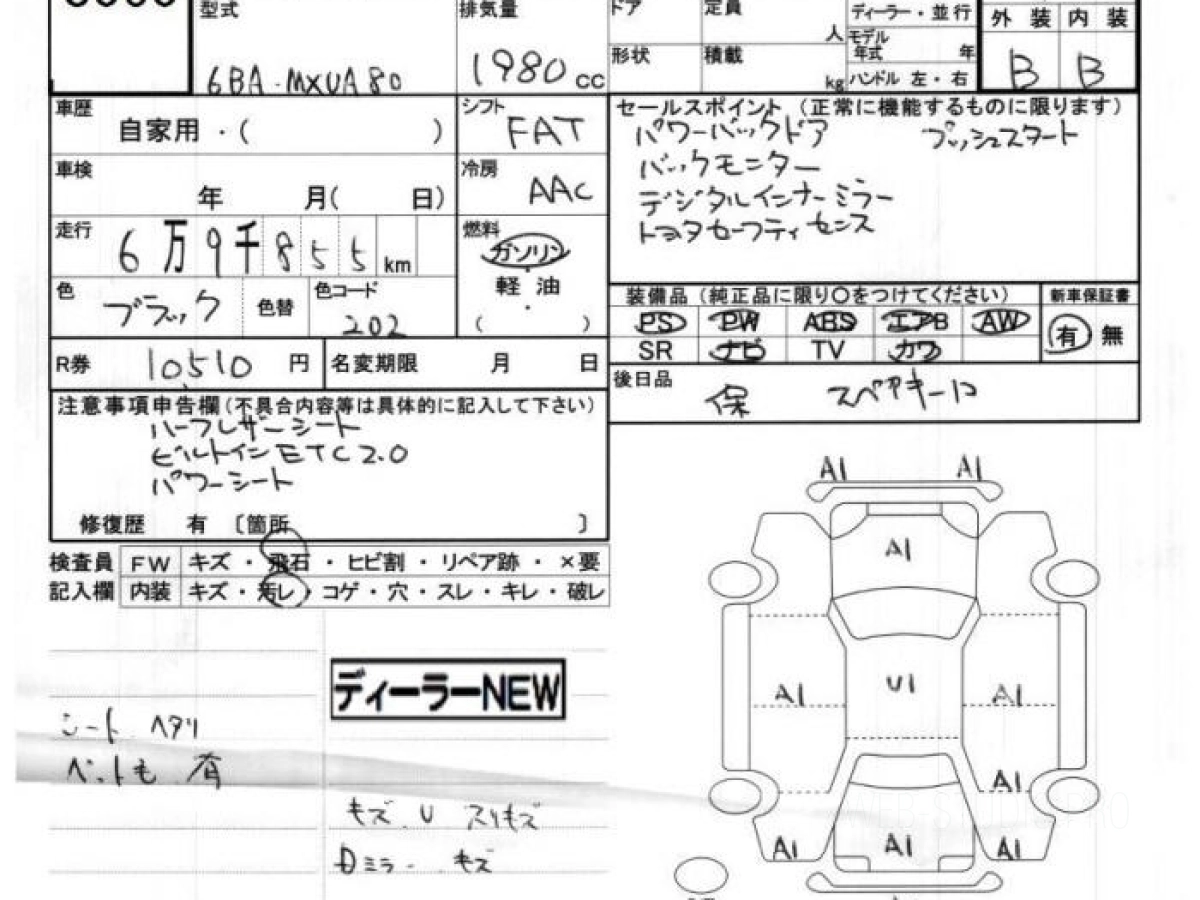 型式
排気量
ドア
定員
人
ディーラー・並行
外装 内装
モデル年式 年
6BA-MXUA80
1980 cc
形状
積載
kg
ハンドル 左・右
B B
車歴
自家用・( )
シフト
FAT
セールスポイント (正常に機能するものに限ります)
パワーバックドア プッシュスタート
バックモニター
デジタルインナーミラー
トヨタセーフティセンス
車検
年 月( 日)
冷房
AAC
走行
6万9千855km
燃料
ガソリン
軽油
( )
色
ブラック
色替
色コード
202
装備品 (純正品に限り○をつけてください)
新車保証書
PS PW ABS エアB AW
SR ナビ TV カワ
有 無
R券
10,510 円
名変期限 月 日
後日品
保 スペアキー1コ
注意事項申告欄(不具合内容等は具体的に記入して下さい)
ハーフレザーシート
ビルトインETC2.0
パワーシート
修復歴 有 〔箇所 〕
検査員記入欄
FW キズ・飛石・ヒビ割・リペア跡・×要
内装 キズ・汚レ・コゲ・穴・スレ・キレ・破レ
ディーラーNEW
シート ヘタリ
ペット毛 有
キズ U スリキズ
Dミラー キズ
A1 A1
A1
U1
A1 A1
A1
A1 A1 A1